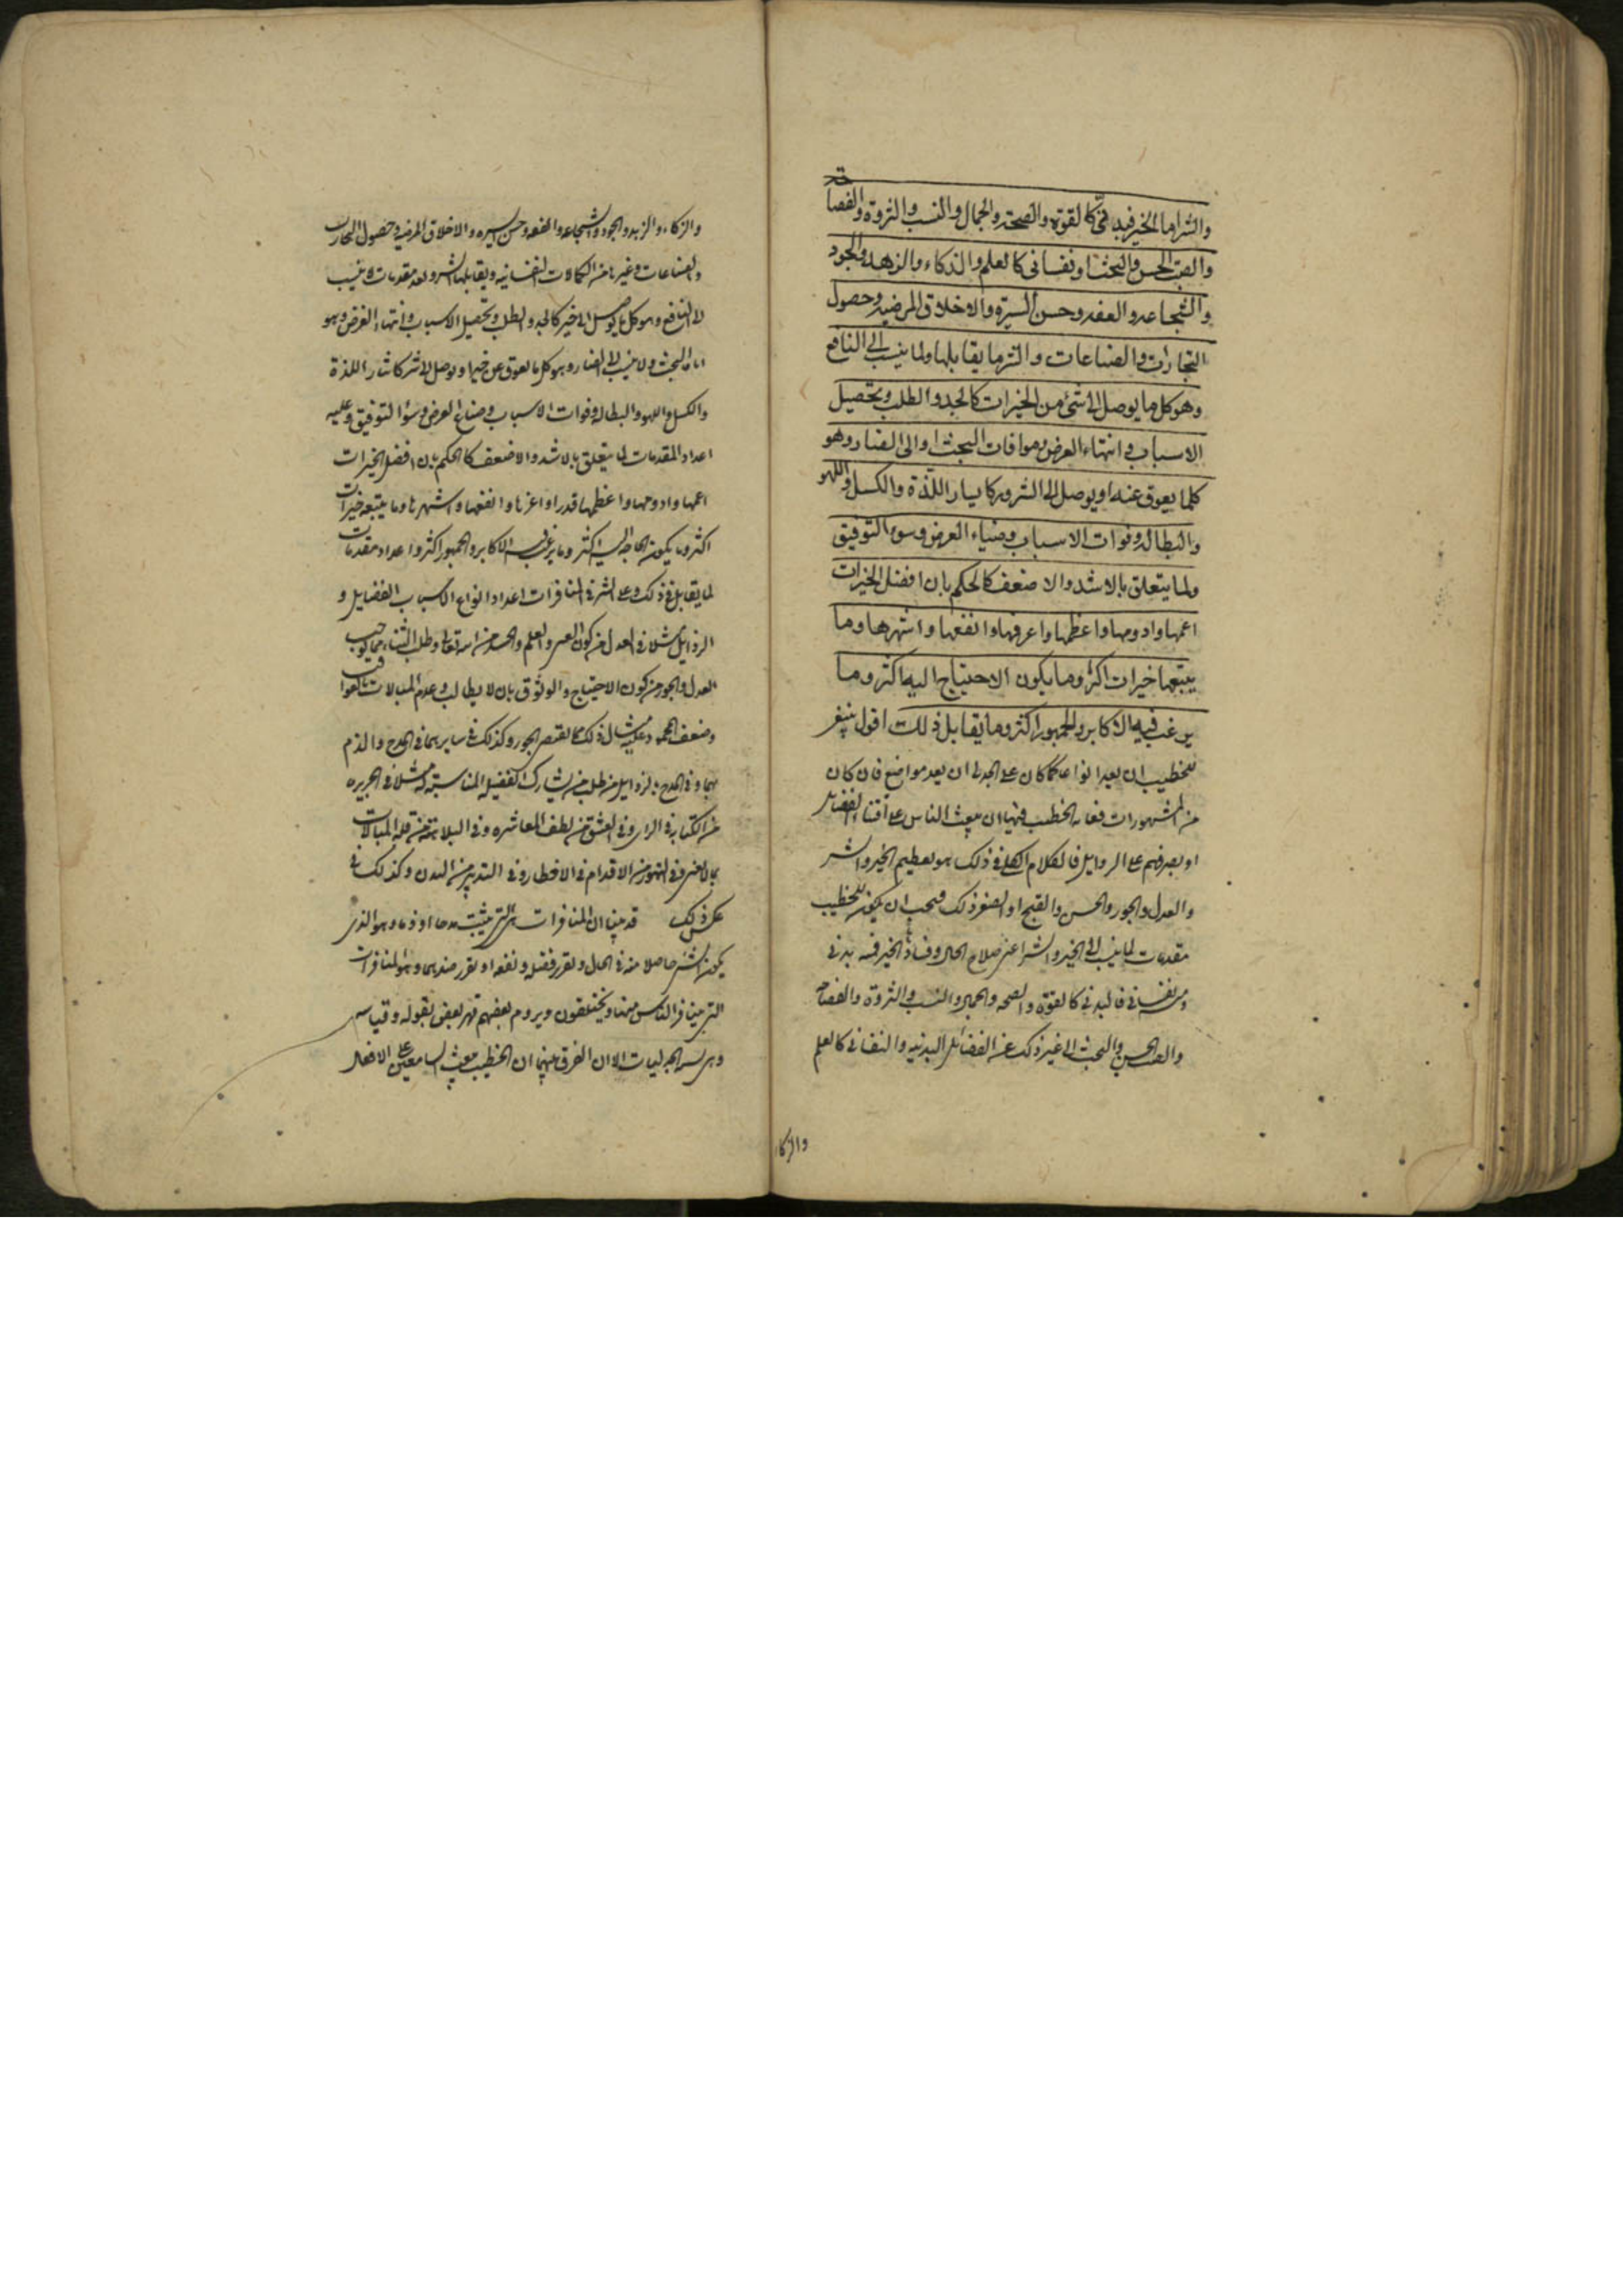 والشر اما الخير فبدنى كالقوة والصحة والجمال والنسب والثروة والفصاحة
والصيت الحسن والبخت او نفسانى كالعلم والذكاء والزهد والجود
والشجاعه والعفه وحسن السيرة والاخلاق المرضيه وحصول
التجارات والصناعات والشر ما يقابلها ولما ينسب الى النافع
وهو كل ما يوصل الى شئ من الخيرات كالجد والطلب وتحصيل
الاسباب وانتهاء الفرص وموافات البخت او الى الضار وهو
كلما يعوق عنه او يوصل الى الشرور كايسار اللذة والكسل واللهو
والبطاله وفوات الاسباب وضياء الفرص وسوء التوفيق
ولما يتعلق بالاشد والاضعف كالحكم بان افضل الخيرات
اعمها وادومها واعظمها واعرفها وانفعها واشهرها وما
يتبعها خيرات اكثر وما يكون الاحتياج اليه اكثر وما
يرغب فيه الاكابر والجمهور اكثر وما يقابل ذلك اقول ينبغى
للخطيب ان يعد انواعا كما كان على الجدلى ان يعد مواضع فان كان
من المشهورات الخطيب فيها ان يبعث الناس على اقتناء الفضايل
او يصرفهم على الرذايل فالكلام الكلى فى ذلك هو تعظيم الخير والشر
والعدل والجور والحسن والقبح او ذلك فيجب ان يكون للخطيب
مقدمات لما ينسب الى الخير والشر اعنى صلاح الحال وفساده الخير فمنه بدنى
ومنه نفسانى فالبدنى كالقوة والصحه والجمال والنسب والثروة والفصاحه
والصيت الحسن والبخت الى غير ذلك من الفضائل البدنيه والنفسانى كالعلم
والزكاء
والزكاء والزهد والجود والشجاعه والعفه وحسن السيره والاخلاق المرضيه وحصول التجارب
والصناعات وغيرها من الكمالات النفسانيه ويقابلها الشر ولعد مقدمات ينسب
الى النافع وهو كل ما يوصل الى خير كالجد والطلب وتحصيل الاسباب وانتهاء الفرص وهو
البخت ولا ينسب الى الضار وهو كل ما يعوق عن خير او يوصل الى شر كاثار اللذة
والكسل واللهو والبطاله وفوات الاسباب وضياع الفرص وسؤ التوفيق وعليه
اعداد المقدمات لما يتعلق بالاشد والاضعف كالحكم بان افضل الخيرات
اعمها وادومها واعظمها قدرا واعزها وانفعها واشهرها وما يتبعه خيرات
اكثر وما يكون الحاجه اليه اكثر وما يرغب فيه الاكابر والجمهور اكثر واعداد مقدمات
لما يقابل ذلك وعلى الشر فى المنافرات اعداد انواع الاسباب الفضايل و
الرذايل مثلا فى العدل من كون والعلم والحسد من الله تعالى وطلب الثناء مما يوجب
العدل والجور من كون الاحتياج والوثوق بان لا يطالب وعدم المبالات بالعواقب
وضعف ذلك مما يقتضى الجور وكذلك فى سايرهما فى المدح والذم
بهما وفى المدح بالرذايل من طلب ما يشارك الفضيله المناسبة له مثلا فى الجربزه
من الكتابة فى الراى وفى الفسق من لطف المعاشره وفى البلاده من قله المبالات
وفى التهور من الاقدام فى الاخطار وفى التبذير من وكذلك فى
عكس ذلك قد بينا ان المنافرات هى التى يثبت مدحا او ذما وهو الذى
يكون الشئ حاصلا منه فى الحال ويقرر فضله ونفعه او يقرر ضدهما وهو المنافرات
التى يتنافر الناس فيها ويختلفون ويروم بعضهم قهر بعض بقوله وقياسه
وهى الجدليات الا ان الفرق بينهما ان الخطيب يبعث السامعين على الافعال